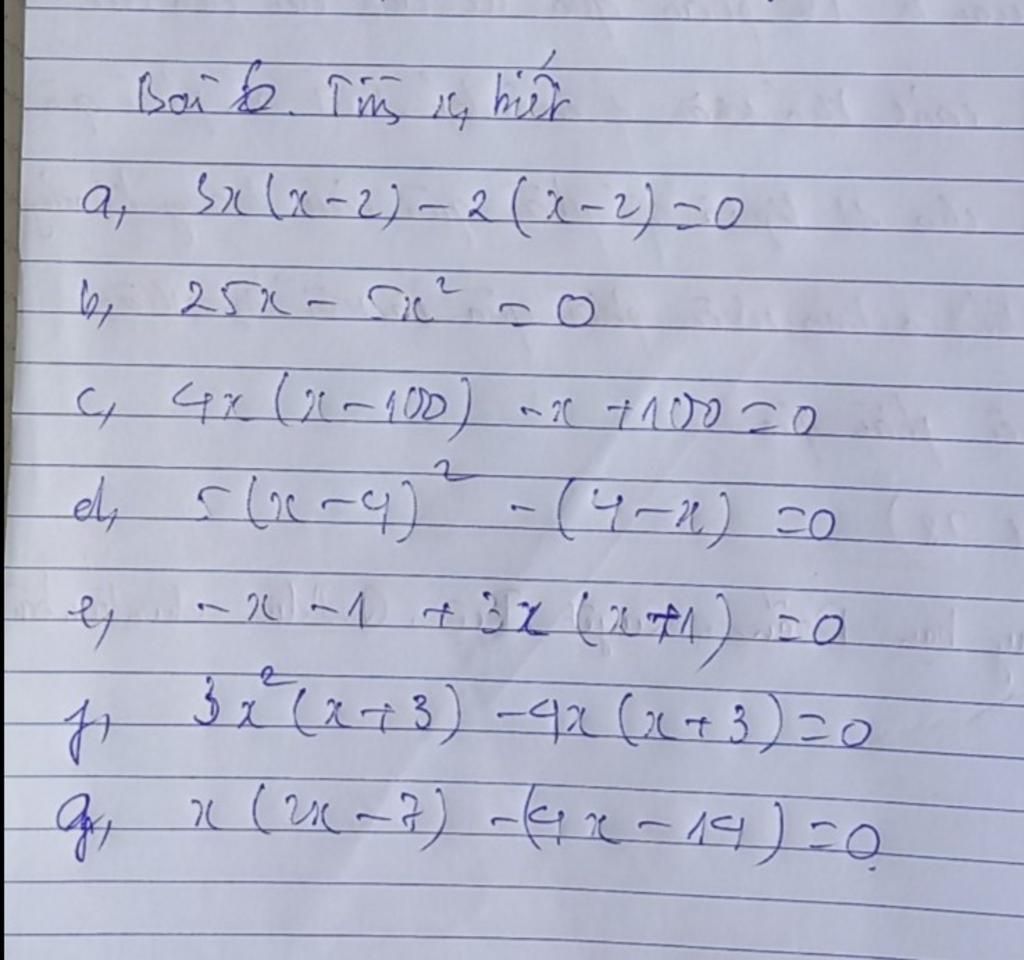 Bài 6. Tìm x, biết
a, 3x(x-2) - 2(x-2) = 0
b, 25x - 5x² = 0
c, 4x(x-100) - x + 100 = 0
d, 5(x-4)² - (4-x) = 0
e, -x - 1 + 3x(x+1) = 0
f, 3x²(x+3) - 4x(x+3) = 0
g, x(2x-7) - (4x-14) = 0